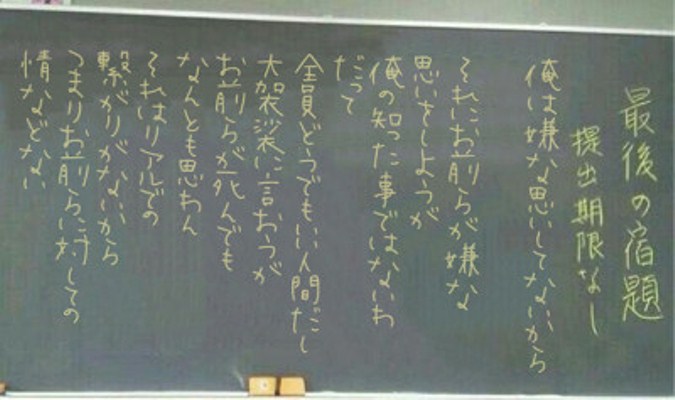 最後の宿題
提出期限なし
俺は嫌な思いしてないから
それにお前らが嫌な
思いをしようが
俺の知った事ではないわ
だって
全員どうでもいい人間だし
大袈裟に言おうが
お前らが死んでも
なんとも思わん
それはリアルでの
繋がりがないから
つまりお前らに対しての
情などない